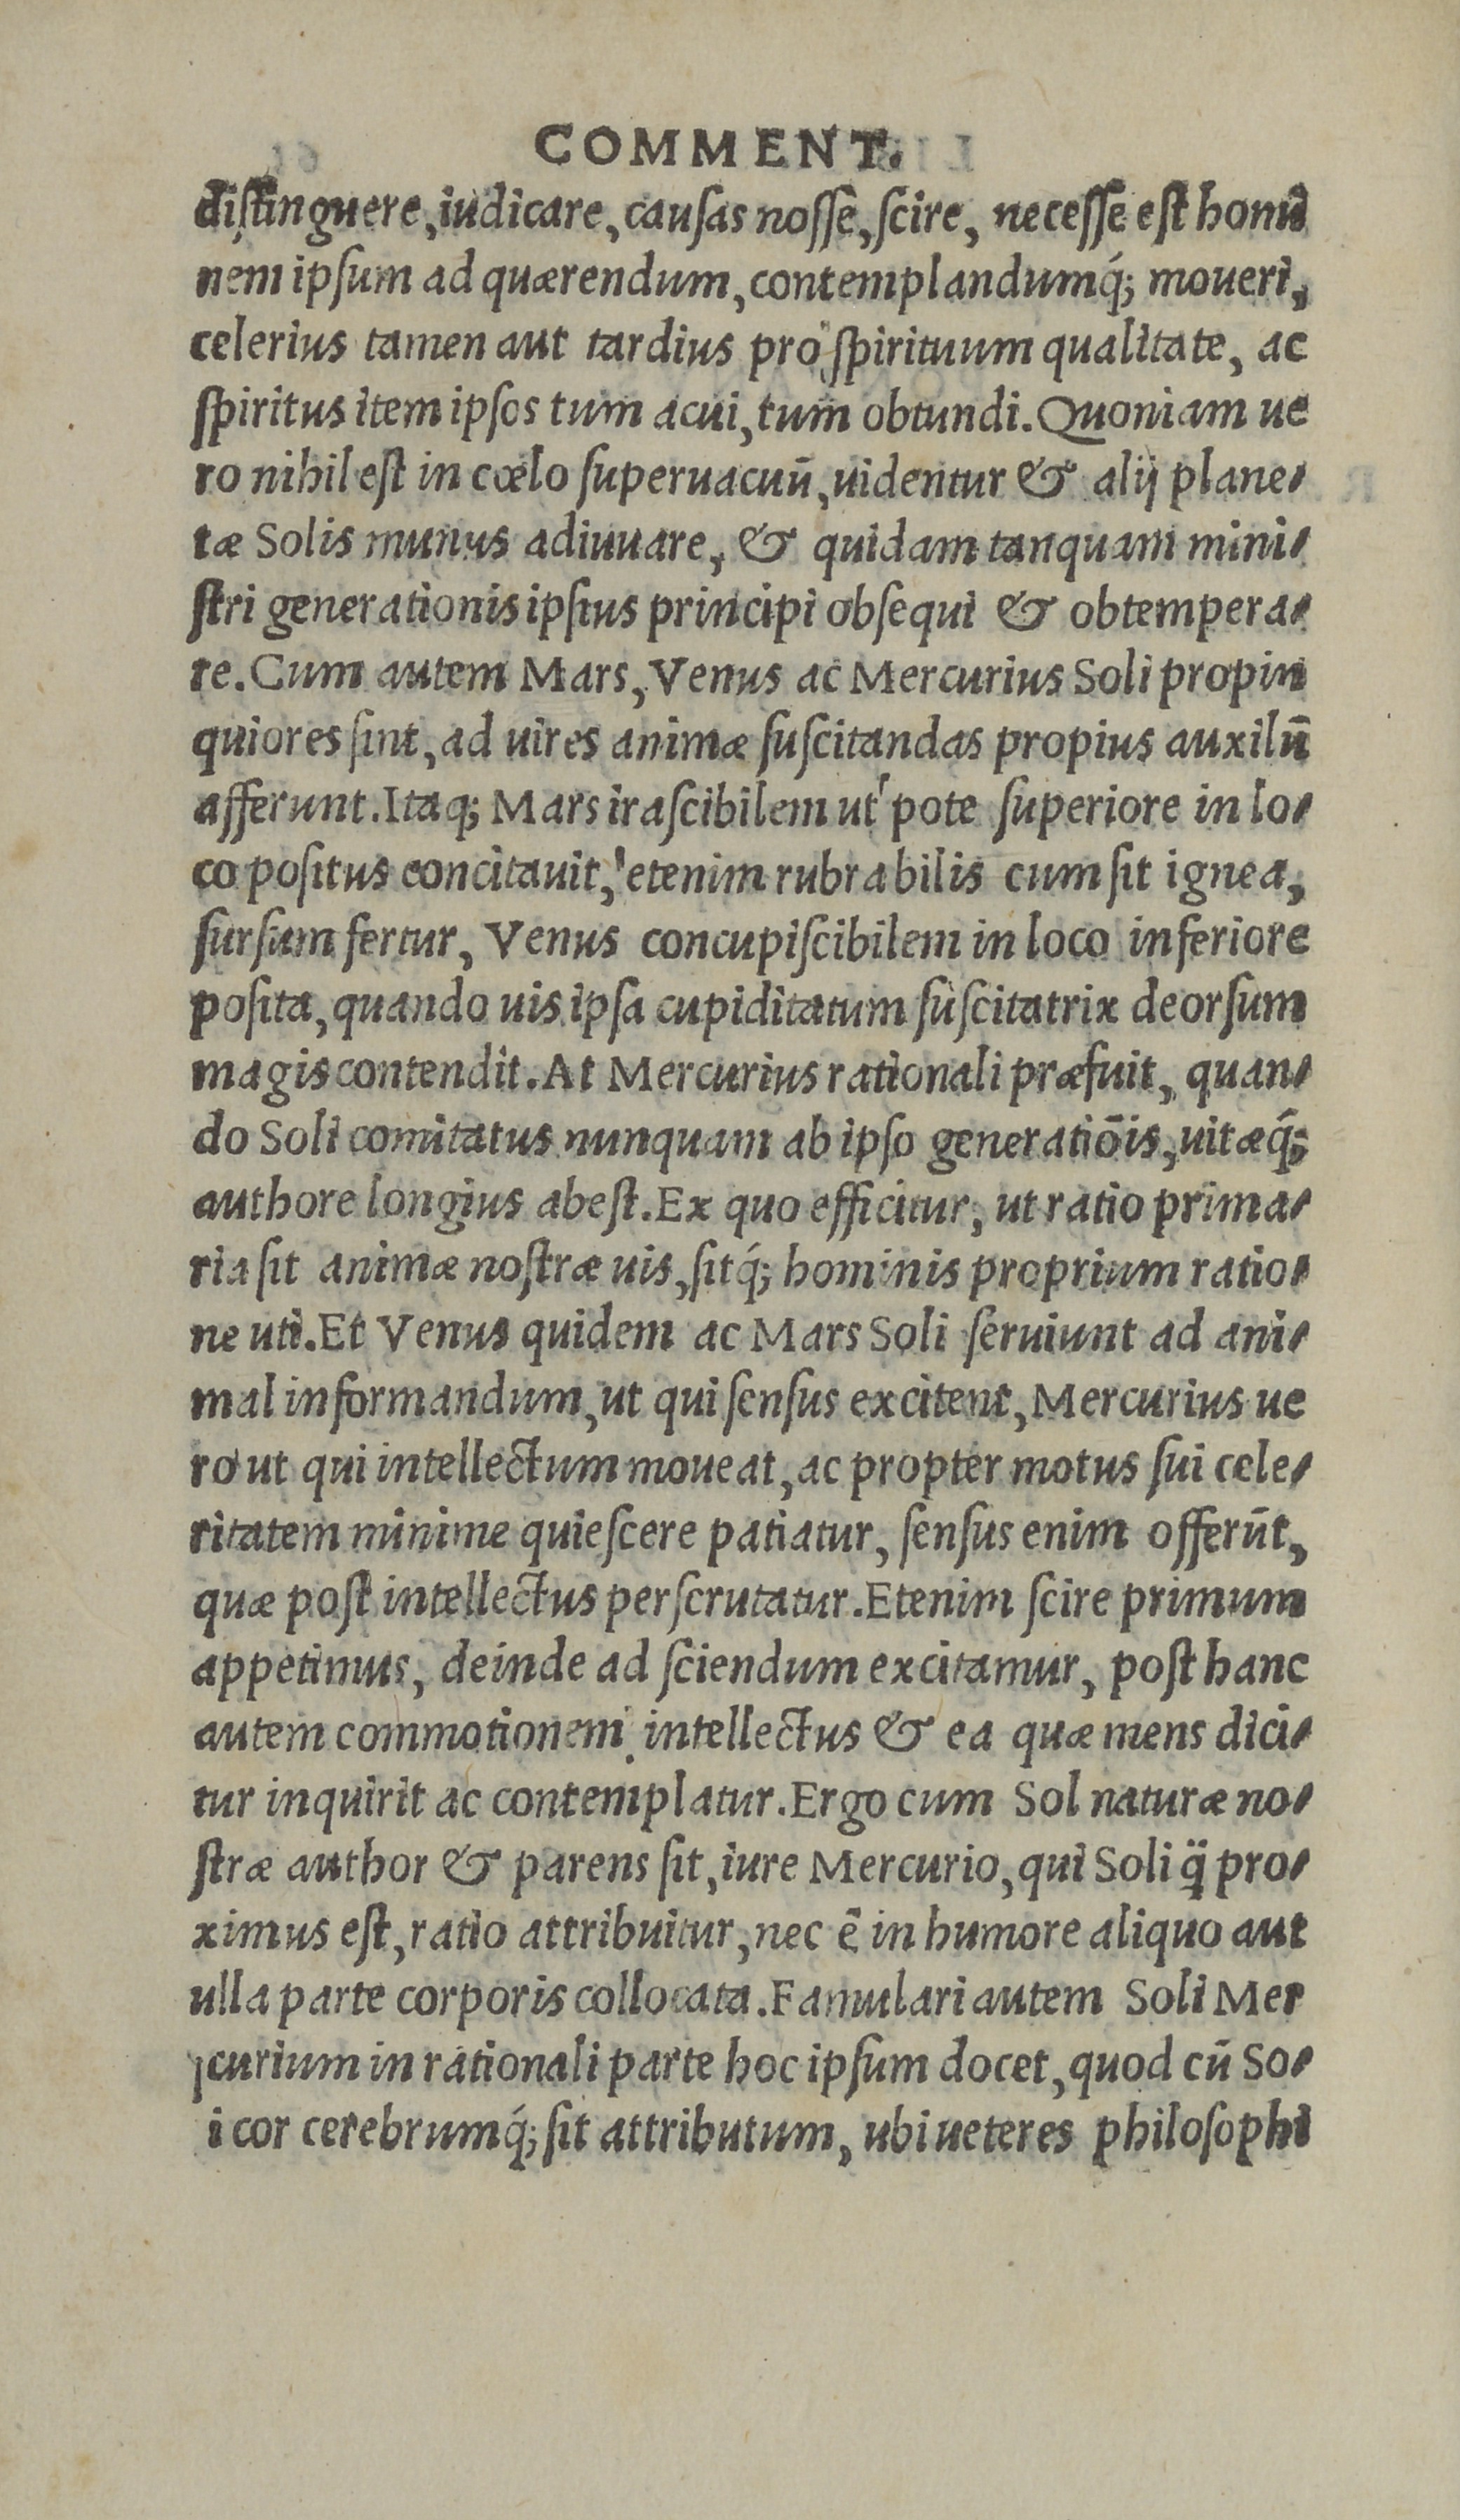 COMMENT.
diſtinguere, iudicare, cauſas noſſe, ſcire, neceſſe eſt homi
nem ipſum ad quærendum, contemplandumq́; moueri,
celerius tamen aut tardius pro ſpirituum qualitate, ac
ſpiritus item ipſos tum acui, tum obtundi. Quoniam ue
ro nihil eſt in cœlo ſuperuacuū, uidentur & alij plane-
tæ Solis munus adiuuare, & quidam tanquam mini-
ſtri generationis ipſius principi obſequi & obtempera-
re. Cum autem Mars, Venus ac Mercurius Soli propin
quiores ſint, ad uires animæ ſuſcitandas propius auxilū
afferunt. Itaq; Mars iraſcibilem ut pote ſuperiore in lo-
co poſitus concitauit, etenim rubra bilis cum ſit ignea,
ſurſum fertur, Venus concupiſcibilem in loco inferiore
poſita, quando uis ipſa cupiditatum ſuſcitatrix deorſum
magis contendit. At Mercurius rationali præfuit, quan-
do Soli comitatus nunquam ab ipſo generatiōis, uitæq́;
authore longius abeſt. Ex quo efficitur, ut ratio prima-
ria ſit animæ noſtræ uis, ſitq́; hominis proprium ratio-
ne uti. Et Venus quidem ac Mars Soli ſeruiunt ad ani-
mal informandum, ut qui ſenſus excitent, Mercurius ue
ro ut qui intellectum moueat, ac propter motus ſui cele-
ritatem minime quieſcere patiatur, ſenſus enim offerūt,
quæ poſt intellectus perſcrutatur. Etenim ſcire primum
appetimus, deinde ad ſciendum excitamur, poſt hanc
autem commotionem intellectus & ea quæ mens dici-
tur inquirit ac contemplatur. Ergo cum Sol naturæ no-
ſtræ author & parens ſit, iure Mercurio, qui Soli q̈ pro-
ximus eſt, ratio attribuitur, nec ē in humore aliquo aut
ulla parte corporis collocata. Famulari autem Soli Mer
curium in rationali parte hoc ipſum docet, quod cū So-
i cor cerebrumq́; ſit attributum, ubi ueteres philoſophi